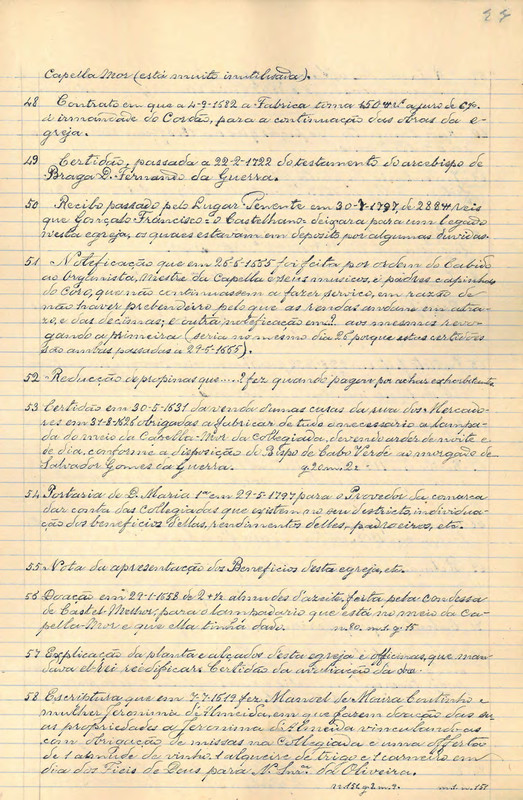 Capella Mor (está muito inutilisada).
48 Contrato em que a 4-9-1582 a Fabrica toma 450 a juro de
á irmandade do Cordão, para a continuação das obras da e-
greja.
49 Certidão, passada a 22-2-1722 do testamento do arcebispo de
Braga D. Fernando da Guerra.
50 Recibo passado pelo Lugar Tenente em 30-7-1797 de 288 reis
que Gonçalo Francisco o Castelhano deixara para um legado
n'esta egreja, os quaes estavam em deposito por algumas duvidas.
51 Notificação que em 25-5-1555 foi feita por ordem do Cabido
ao Organista, Mestre da Capella e seus musicos, e padres capinhas
do Coro, que não continuassem a fazer serviço, em razão de
não haver prebendeiro pelo que as rendas andam em atra-
zo, e das decimas; e outra notificação em...? aos mesmos revo-
gando a primeira (seria no mesmo dia 25 porque estas certidões
são ambas passadas a 29-5-1555).
52 Reducção de propinas que....? fez quando pagem por achar exhorbitante
53 Certidão em 30-5-1631 da venda d'umas casas da rua dos Mercado-
res em 31-8-1626 obrigadas a fabricar de tudo o necessario a lampa-
da do meio da Capella-Mor da Collegiada, devendo arder de noite e
de dia, conforme a disposição do Bispo de Cabo Verde ao morgado de
Salvador Gomes da Guerra. g 20 m. 2
54 Portaria de D. Maria 1ª em 29-5-1797 para o Provedor da comarca
dar conta das Collegiadas que existem no seu districto, individua-
ção dos beneficios d'ellas, rendimentos delles, padroeiros, etc.
55 Nota da apresentação dos Beneficios desta egreja, etc.
56 Doação em 29-1-1558 de 2 almudes d'azeite, feita pela condessa
de Castel-Melhor, para o lampadario que está no meio da Ca-
pella-Mor e que ella tinha dado. n. 80. m. g 15
57 Explicação da planta e alçados desta egreja e officinas, que man-
dava el-Rei reidificar. Certidão da avaliação da obra
58 Escritura que em 7-7-1519 fez Manoel de Moura Coutinho e
mulher Jeronima d'Almeida, em que fazem doação das su-
as propriedades a Jeronima d'Almeida vinculando-as
com obrigação de missas na Collegiada e uma offerta
de 1 almude de vinho, 1 alqueire de trigo e 1 carneiro em
dia dos Fieis de Deus para N. Snrª da Oliveira.